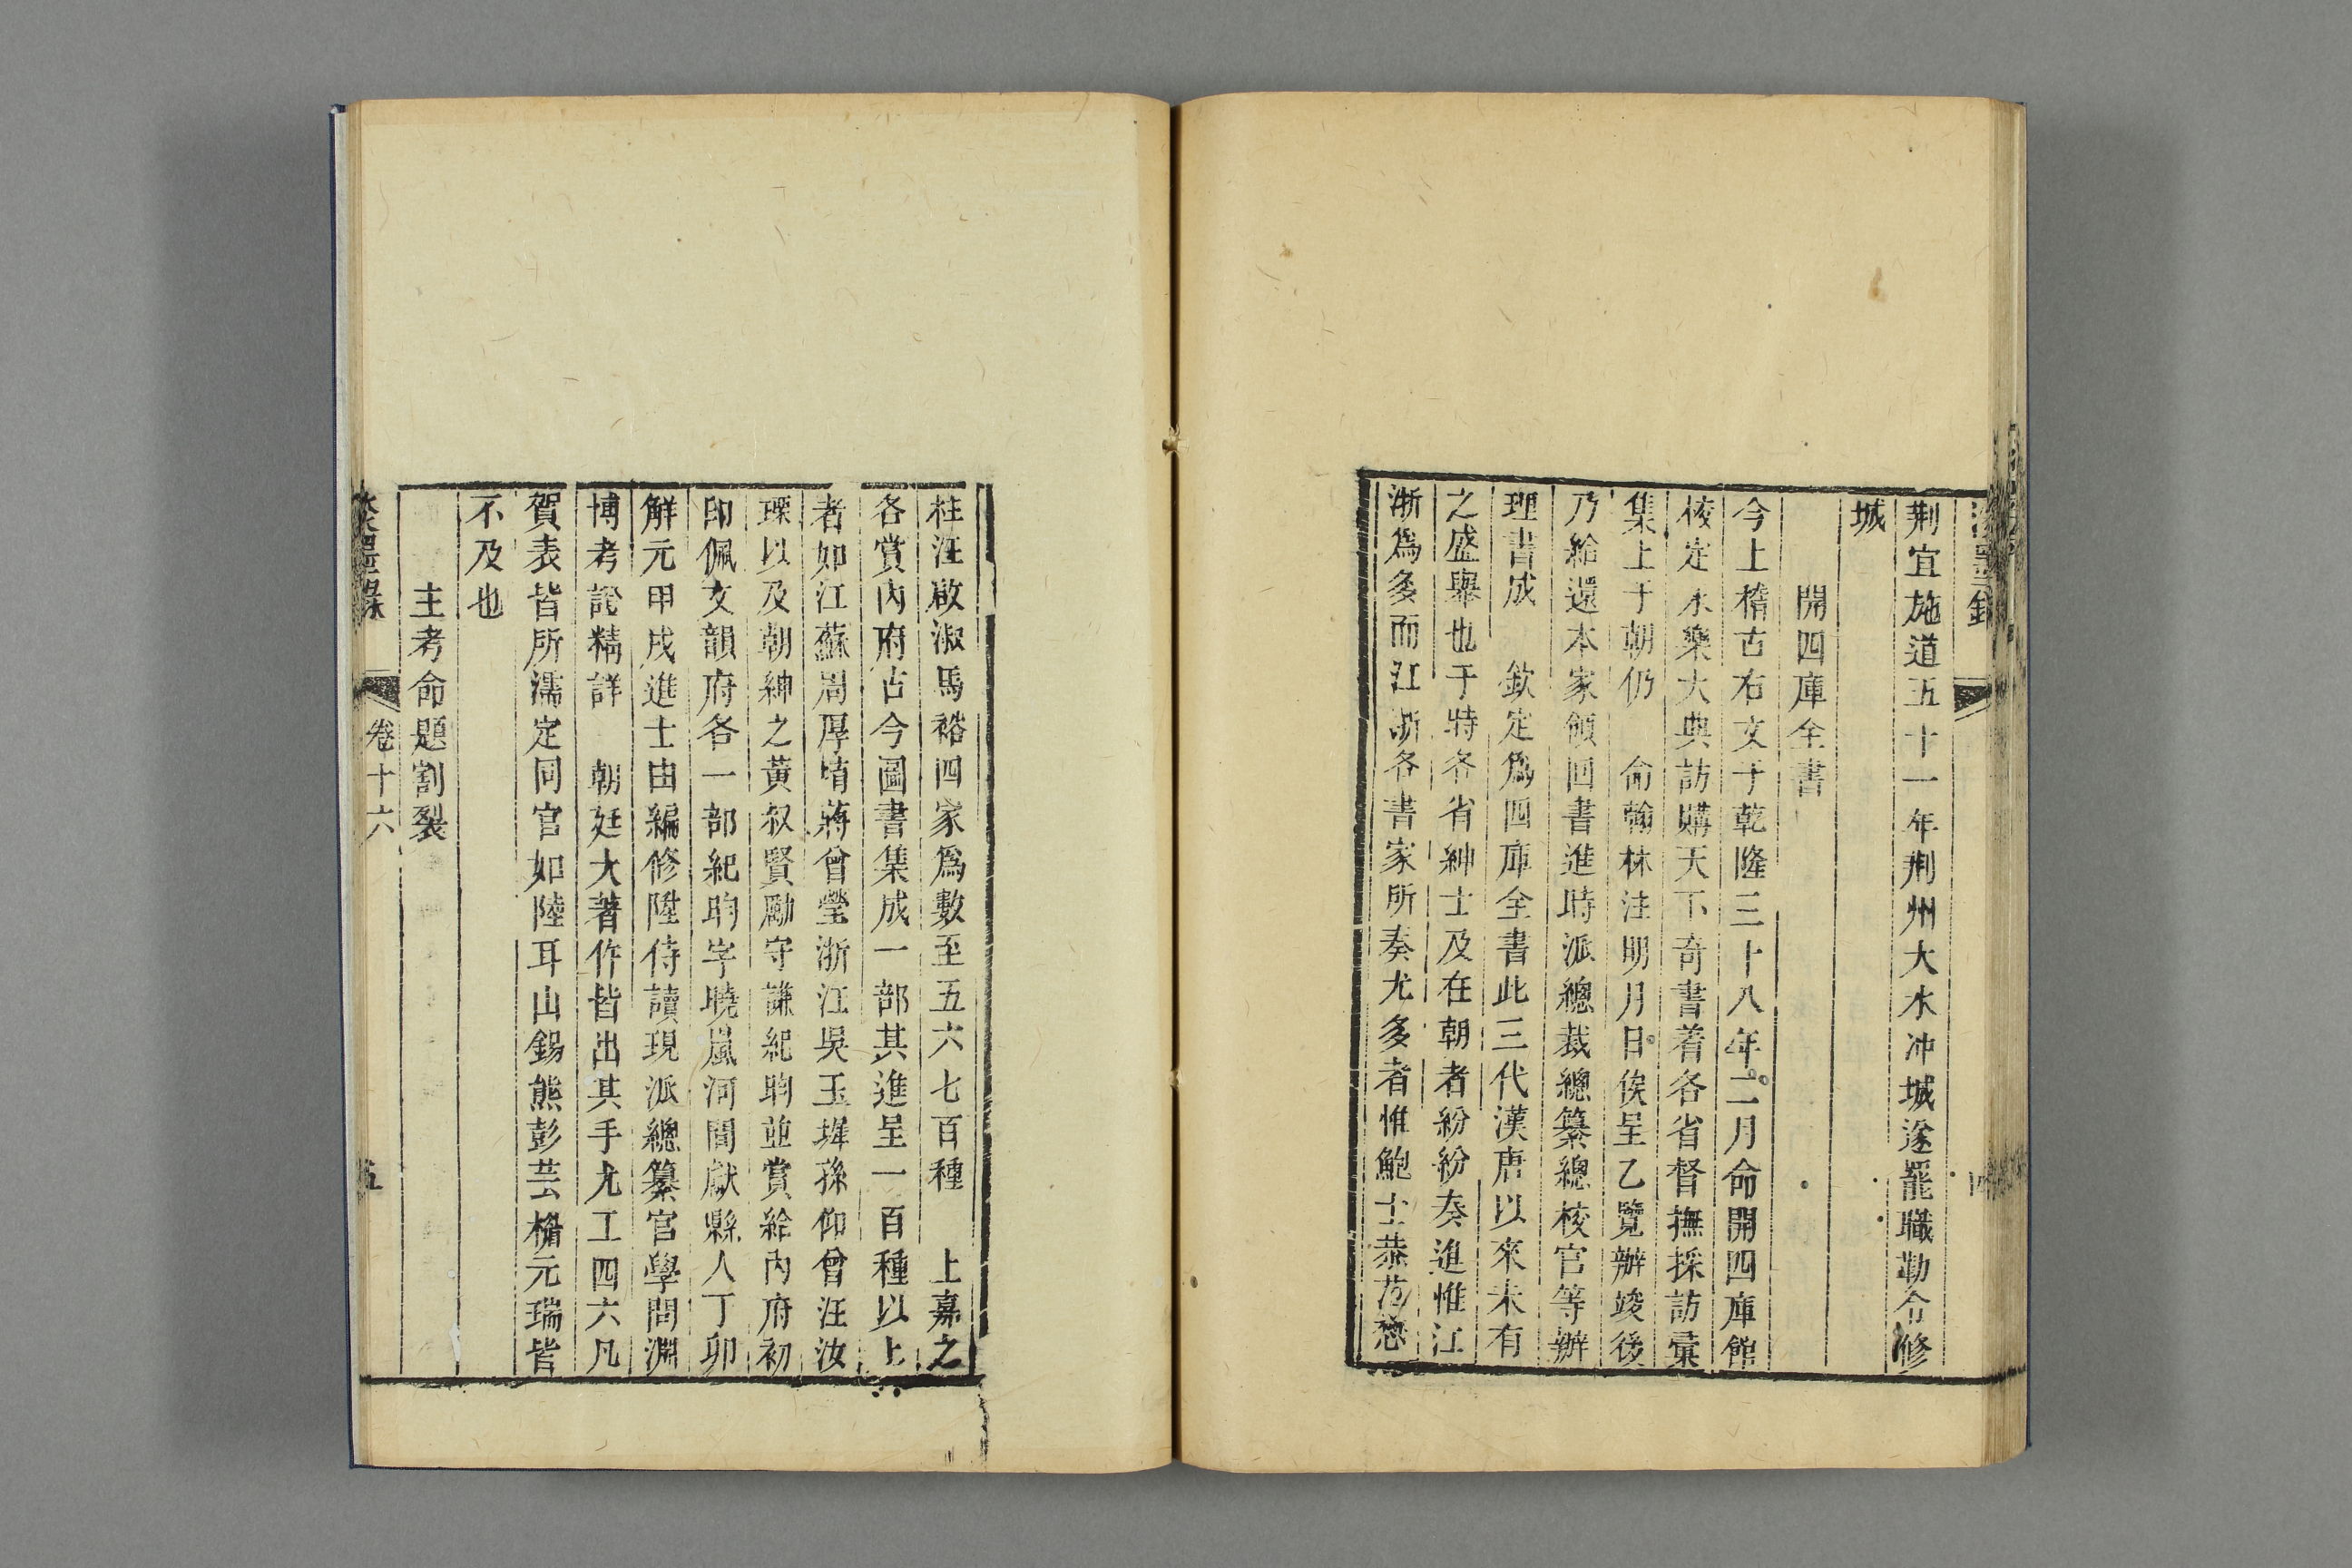 荆宜施道五十一年荆州大水冲城遂罷職勒令修
城
開四庫全書
今上稽古右文于乾隆三十八年二月命開四庫館
校定永樂大典訪購天下奇書着各省督撫採訪彙
集上于朝仍 命翰林注明月日俟呈乙覽辦竣後
乃給還本家領回書進時派總裁總纂總校官等辦
理書成 欽定爲四庫全書此三代漢唐以來未有
之盛舉也于時各省紳士及在朝者紛紛奏進惟江
浙爲多而江浙各書家所奏尤多者惟鮑士恭范懋
柱汪啟淑馬裕四家爲數至五六七百種 上嘉之
各賞內府古今圖書集成一部其進呈一百種以上
者如江蘇周厚堉蔣曾瑩浙江吳玉墀孫仰曾汪汝
瑮以及朝紳之黃叔賢勵守謙紀昀並賞給內府初
印佩文韻府各一部紀昀字曉嵐河間獻縣人丁卯
解元甲戌進士由編修陞侍讀現派總纂官學問淵
博考訂精詳 朝廷大著作皆出其手尤工四六凡
賀表皆所濡定同官如陸耳山錫熊彭芸楣元瑞皆
不及也
主考命題割裂
卷十六
五